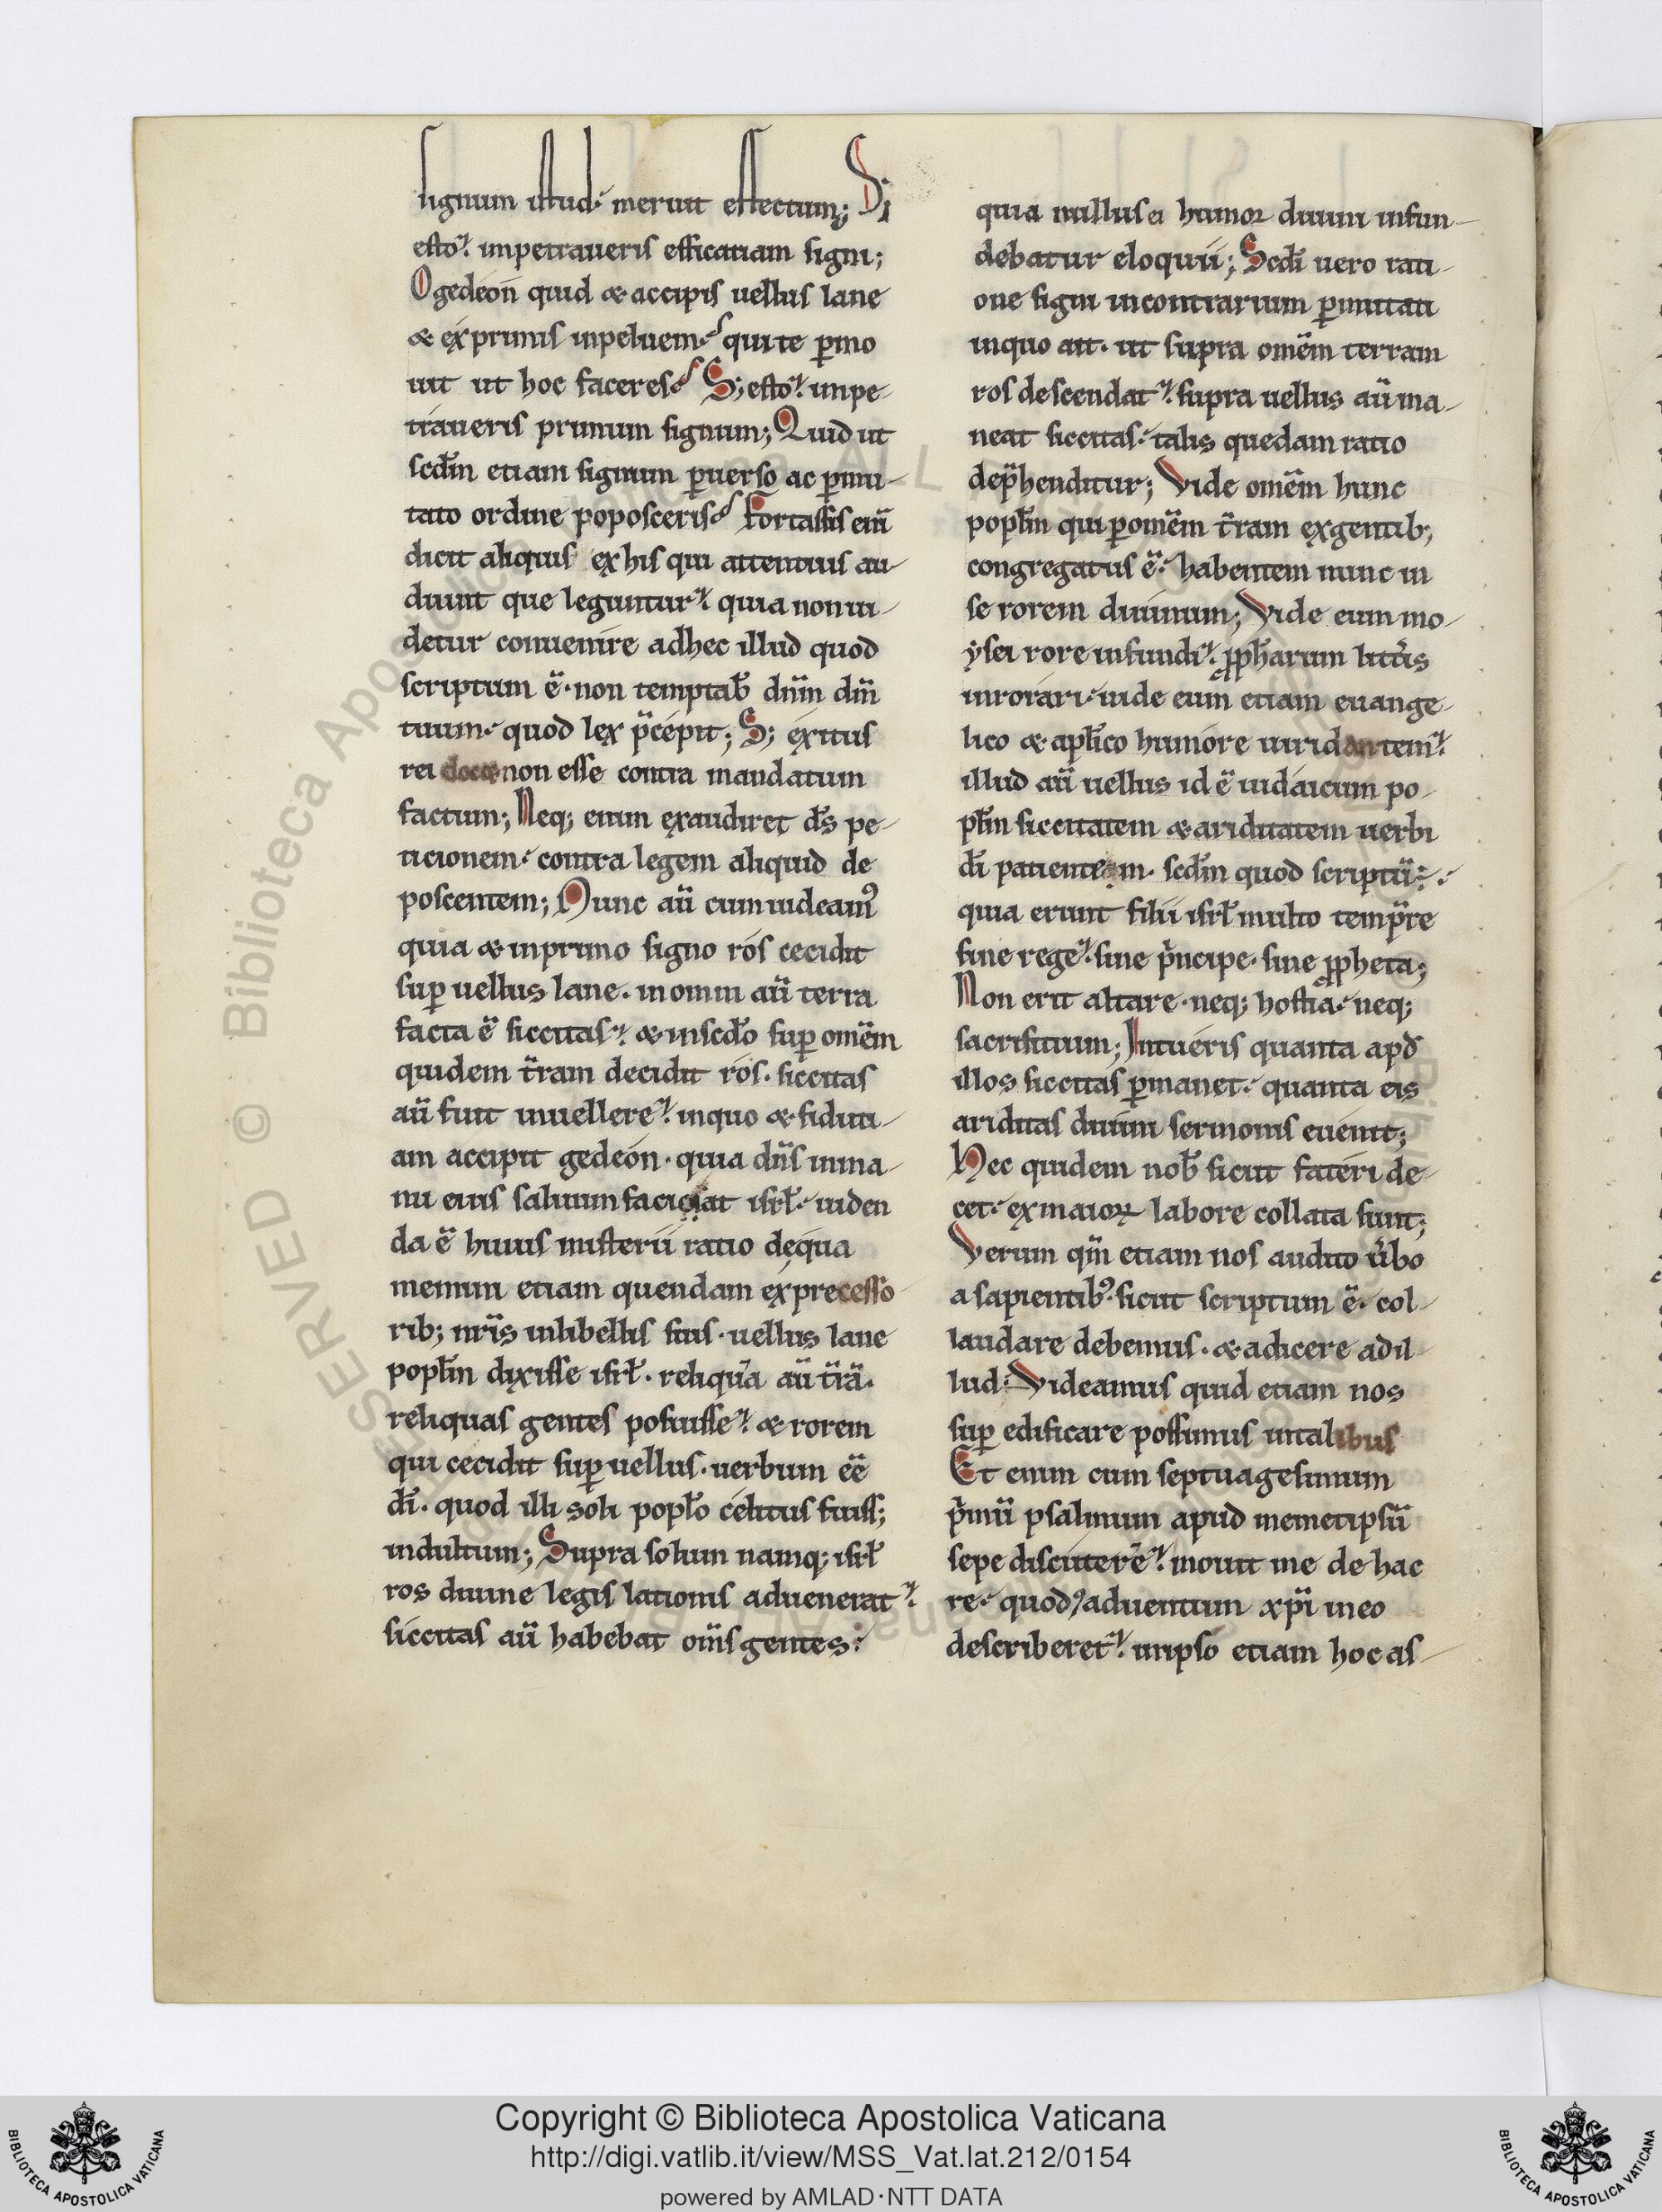 signum istud· meruit effectum; S;
esto· impetraueris efficatiam signi;
O gedeon quid & accipis uellus lane
& exprimis inpeluem· qui te ꝑmo
uit ut hoc faceres· S; esto· impe-
traueris primum signum; Quid ut
scd̄m etiam signum ꝑuerso ac ꝑmu-
tato ordine poposceris· Fortassis eni̅
dicit aliquis ex his qui attentius au-
diunt que leguntur· quia non ui-
detur conuenire adhec illud quod
scriptum e̅· non temptab̅ dn̅m dm̅
tuum· quod lex p̅cepit; S; exitus
rei docet non esse contra mandatum
factum; Neq; enim exaudiret ds̅ pe-
ticionem· contra legem aliquid de
poscentem; Nunc au̅ cum uideamꝰ
quia & inprimo signo ros cecidit
suꝑ uellus lane· in omni au̅ terra
facta e̅ siccitas· & inscd̅o suꝑ ome̅m
quidem t̅ram decidit ros· siccitas
au̅ fuit inuellere· inquo & fiduti-
am accipit gedeon· quia dn̅s inma-
nu eius saluum faciat isrl̅· uiden
da e̅ huius misterii ratio dequa
memini etiam quendam ex precesso
rib; nr̅is inlibellis suis· uellus lane
popl̅m dixisse isrl̅· reliqua̅ au̅ t̅ra̅·
reliquas gentes posuisse· & rorem
qui cecidit suꝑ uellus· uerbum ee̅
di̅· quod illi soli popl̅o celitus fuiss;
indultum; Supra solum namq; isrl̅
ros diuine legis lationis aduenerat·
siccitas au̅ habebat om̅s gentes·
quia nullus ei humor diuini infun-
debatur eloquii; Scdi̅ uero rati-
one signi incontrarium ꝑmutati
inquo ait· ut supra ome̅m terram
ros descendat· supra uellus au̅ ma-
neat siccitas· talis quedam ratio
dep̅henditur; Vide ome̅m hunc
popl̅m qui ꝑ ome̅m t̅ram ex gentib;
congregatus e̅· habentem nunc in
se rorem diuinum; Vide eum mo-
ysei rore infundi· ꝓph̅arum litt̅is
inrorari· uide eum etiam euange-
lico & apl̅ico humore uiridantem·
illud au̅ uellus id e̅ iudaicum po-
pl̅m siccitatem & ariditatem uerbi
di̅ patientem· scd̅m quod scriptu̅ ÷·
quia erunt filii isrl̅ multo temp̅re
sine rege· sine p̅ncipe· sine ꝓpheta;
Non erit altare· neq; hostia· neq;
sacrifitium; Intueris quanta apd̅
illos siccitas ꝑmanet· quanta eis
ariditas diuini sermonis euenit;
Hec quidem nob̅ sicut fateri de-
cet· ex maioꝝ labore collata sunt;
Verum qm̅ etiam nos audito u̅bo
a sapientibꝰ· sicut scriptum e̅· col-
laudare debemus· & adicere adil-
lud· Videamus quid etiam nos
suꝑ edificare possimus intalibus
Et enim cum septuagesimum
p̅mu̅ psalmum apud memetipsu̅
sepe discutere̅· mouit me de hac
re· quod aduentum xp̅i ineo
describeret· inipso etiam hoc as-
Copyright © Biblioteca Apostolica Vaticana
http://digi.vatlib.it/view/MSS_Vat.lat.212/0154
powered by AMLAD·NTT DATA
BIBLIOTECA APOSTOLICA VATICANA
BIBLIOTECA APOSTOLICA VATICANA